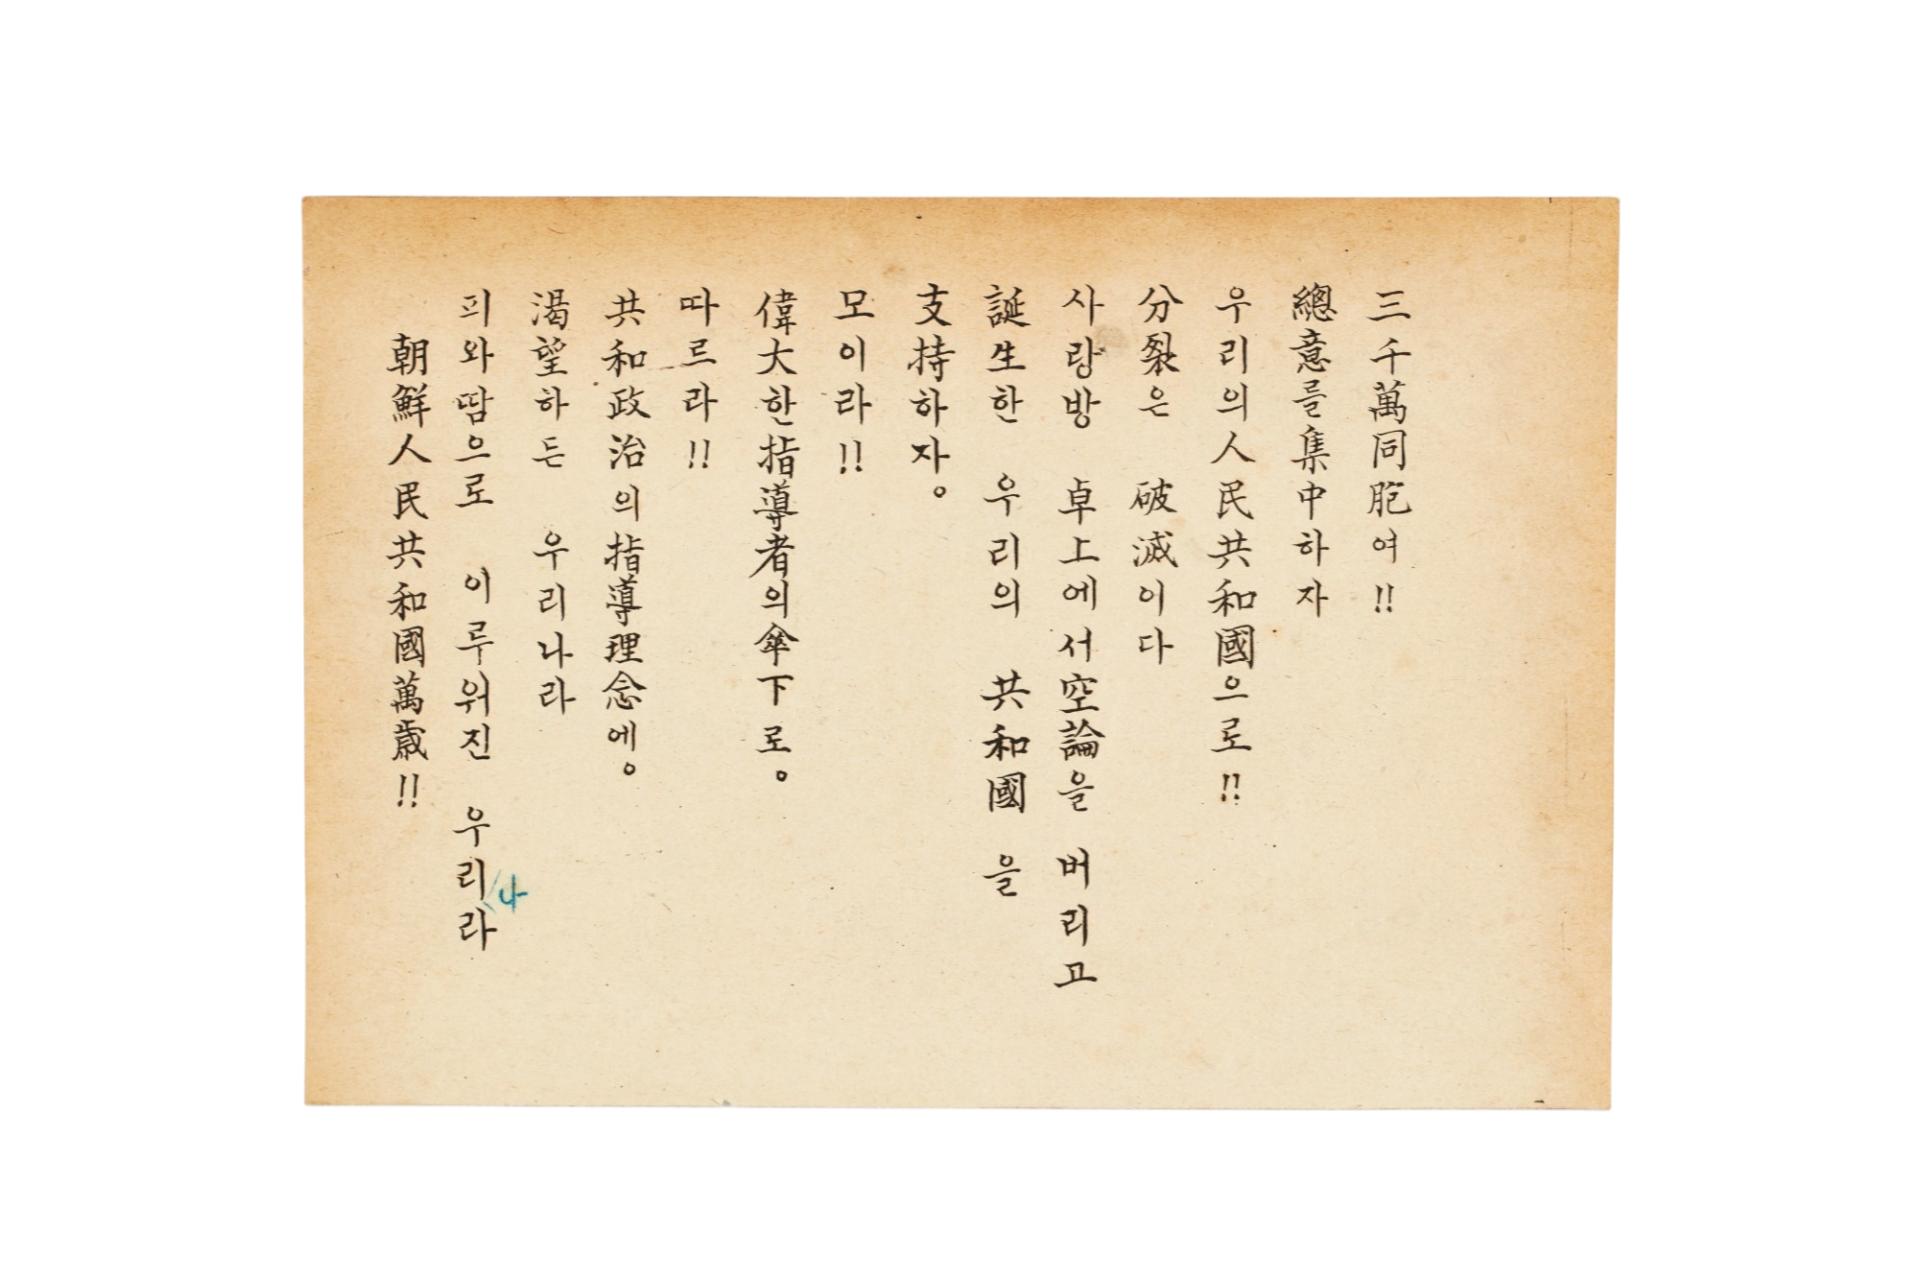 三千萬同胞여!!
總意를集中하자
우리의人民共和國으로!!
分裂은 破滅이다
사랑방 卓上에서空論을 버리고
誕生한 우리의 共和國을
支持하자。
모이라!!
偉大한指導者의傘下로。
따르라!!
共和政治의指導理念에。
渴望하든 우리나라
피와땀으로 이루워진 우리나라
朝鮮人民共和國萬歲!!